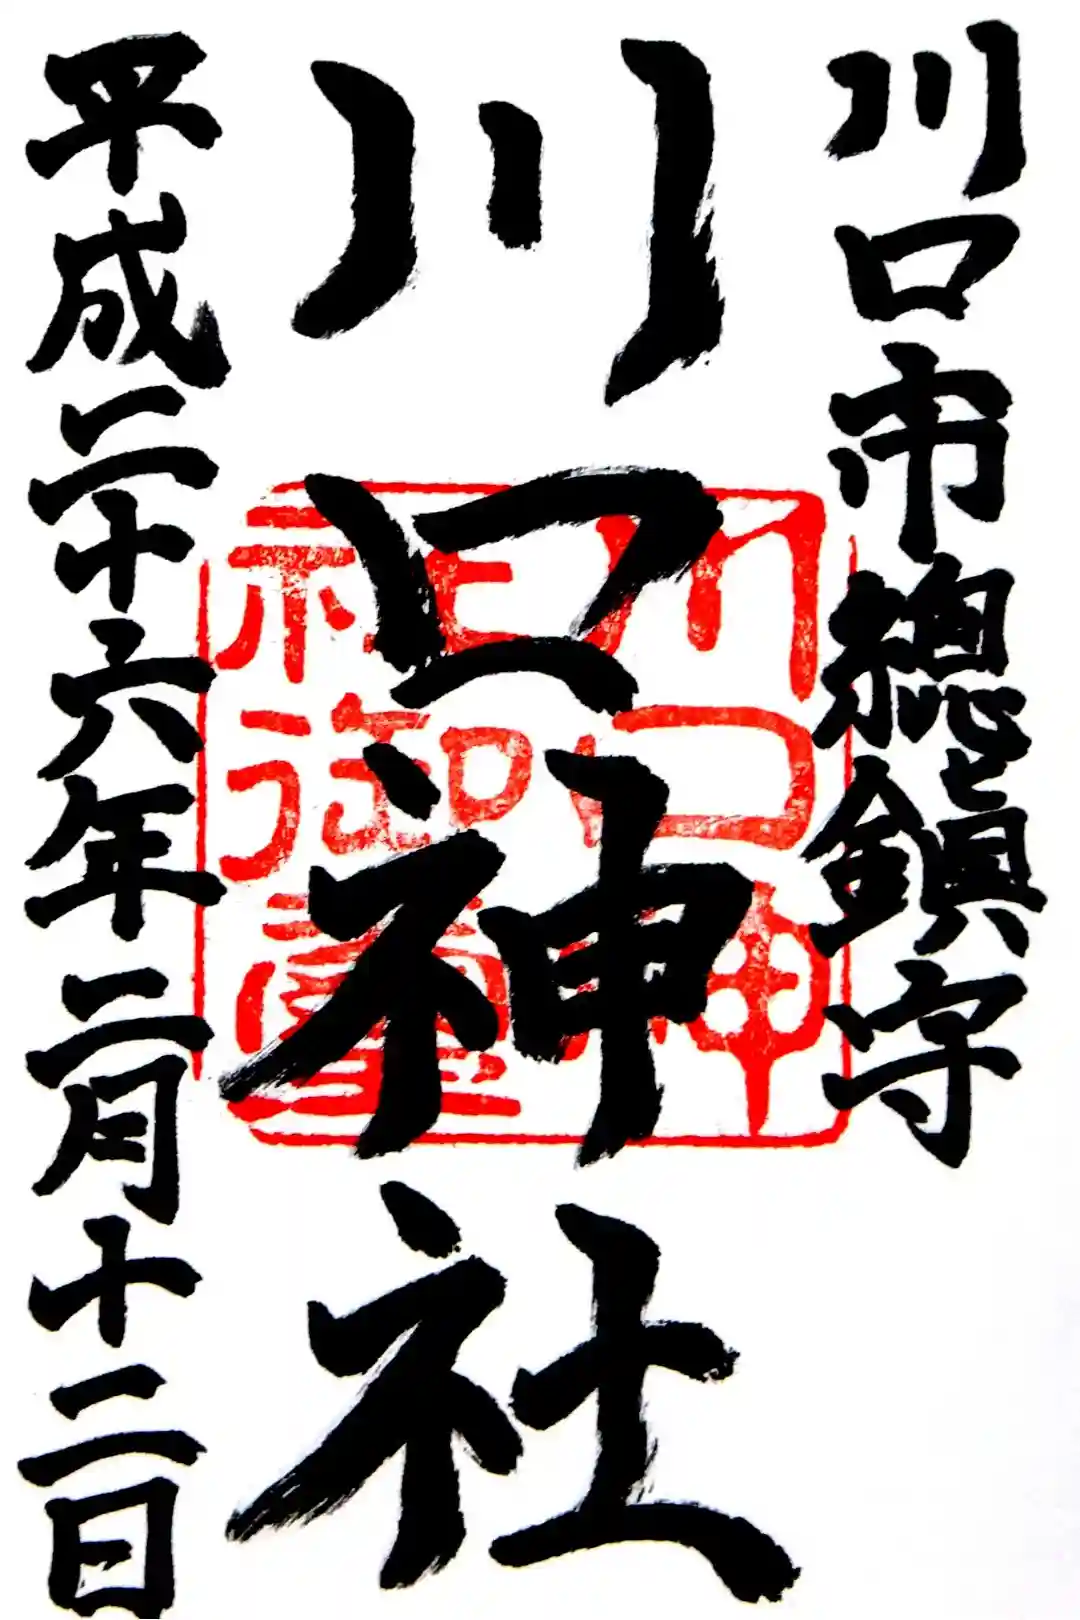 川口市總鎮守
川口神社
川口神
社御璽
平成二十六年二月十二日